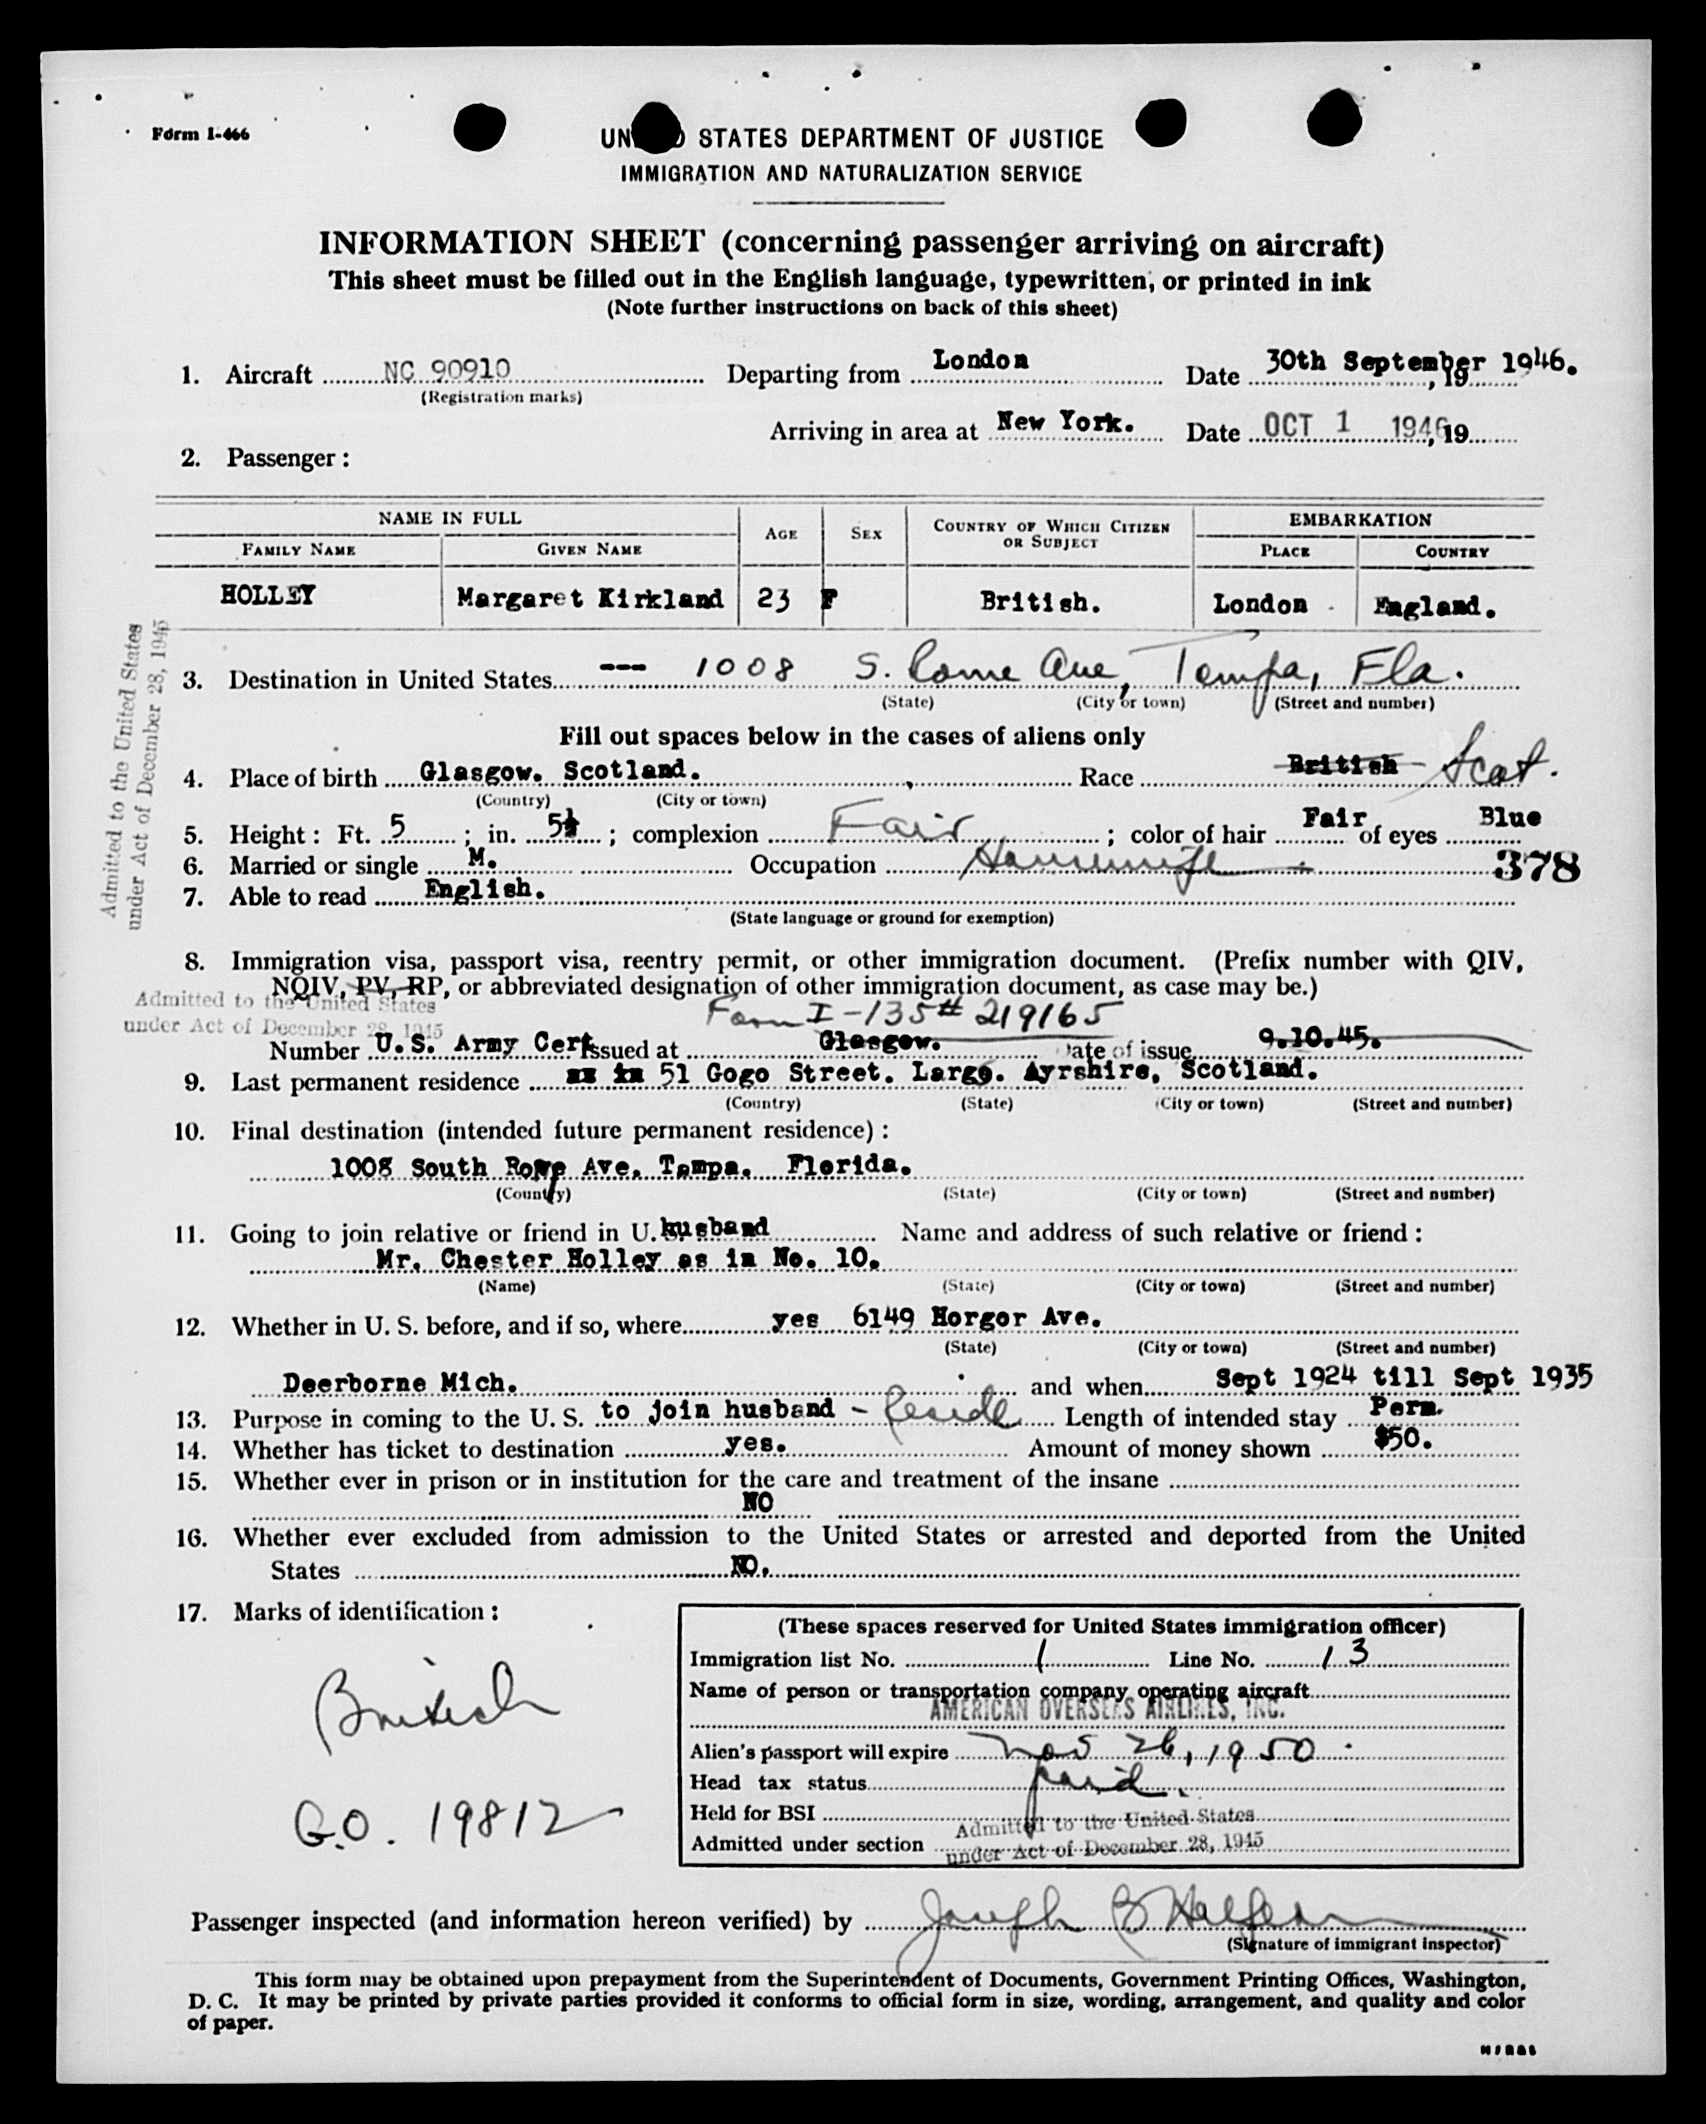 Form I-466
UNITED STATES DEPARTMENT OF JUSTICE
IMMIGRATION AND NATURALIZATION SERVICE
INFORMATION SHEET (concerning passenger arriving on aircraft)
This sheet must be filled out in the English language, typewritten, or printed in ink
(Note further instructions on back of this sheet)
1. Aircraft NC 90910 Departing from London Date 30th September 1946. , 19
(Registration marks)
Arriving in area at New York. Date OCT 1 1946, 19
2. Passenger:
NAME IN FULL AGE SEX COUNTRY OF WHICH CITIZEN OR SUBJECT EMBARKATION
FAMILY NAME GIVEN NAME PLACE COUNTRY
HOLLEY Margaret Kirkland 23 F British. London England.
Admitted to the United States
under Act of December 28, 1945
3. Destination in United States --- 1008 S. Rome Ave, Tampa, Fla.
(State) (City or town) (Street and number)
Fill out spaces below in the cases of aliens only
4. Place of birth Glasgow. Scotland. , Race British - Scot.
(Country) (City or town)
5. Height: Ft. 5 ; in. 5½ ; complexion Fair ; color of hair Fair of eyes Blue
6. Married or single M. Occupation Housewife
378
7. Able to read English.
(State language or ground for exemption)
8. Immigration visa, passport visa, reentry permit, or other immigration document. (Prefix number with QIV,
NQIV, PV, RP, or abbreviated designation of other immigration document, as case may be.)
Admitted to the United States
under Act of December 28, 1945
Form I-135 # 219165
Number U.S. Army Cert Issued at Glasgow. Date of issue 9.10.45.
9. Last permanent residence as in 51 Gogo Street. Largs. Ayrshire, Scotland.
(Country) (State) (City or town) (Street and number)
10. Final destination (intended future permanent residence):
1008 South Rome Ave. Tampa. Florida.
(Country) (State) (City or town) (Street and number)
11. Going to join relative or friend in U. S. husband Name and address of such relative or friend:
Mr. Chester Holley as in No. 10.
(Name) (State) (City or town) (Street and number)
12. Whether in U. S. before, and if so, where yes 6149 Horger Ave.
(State) (City or town) (Street and number)
Deerborne Mich. and when Sept 1924 till Sept 1935
13. Purpose in coming to the U. S. to join husband - Reside Length of intended stay Perm.
14. Whether has ticket to destination yes. Amount of money shown $50.
15. Whether ever in prison or in institution for the care and treatment of the insane
NO
16. Whether ever excluded from admission to the United States or arrested and deported from the United
States NO.
17. Marks of identification:
British
G.O. 19812
(These spaces reserved for United States immigration officer)
Immigration list No. 1 Line No. 13
Name of person or transportation company operating aircraft
AMERICAN OVERSEAS AIRLINES, INC.
Alien's passport will expire Nov 26, 1950.
Head tax status paid.
Held for BSI
Admitted under section Admitted to the United States
under Act of December 28, 1945
Passenger inspected (and information hereon verified) by Joseph B Halpern
(Signature of immigrant inspector)
This form may be obtained upon prepayment from the Superintendent of Documents, Government Printing Offices, Washington,
D. C. It may be printed by private parties provided it conforms to official form in size, wording, arrangement, and quality and color
of paper.